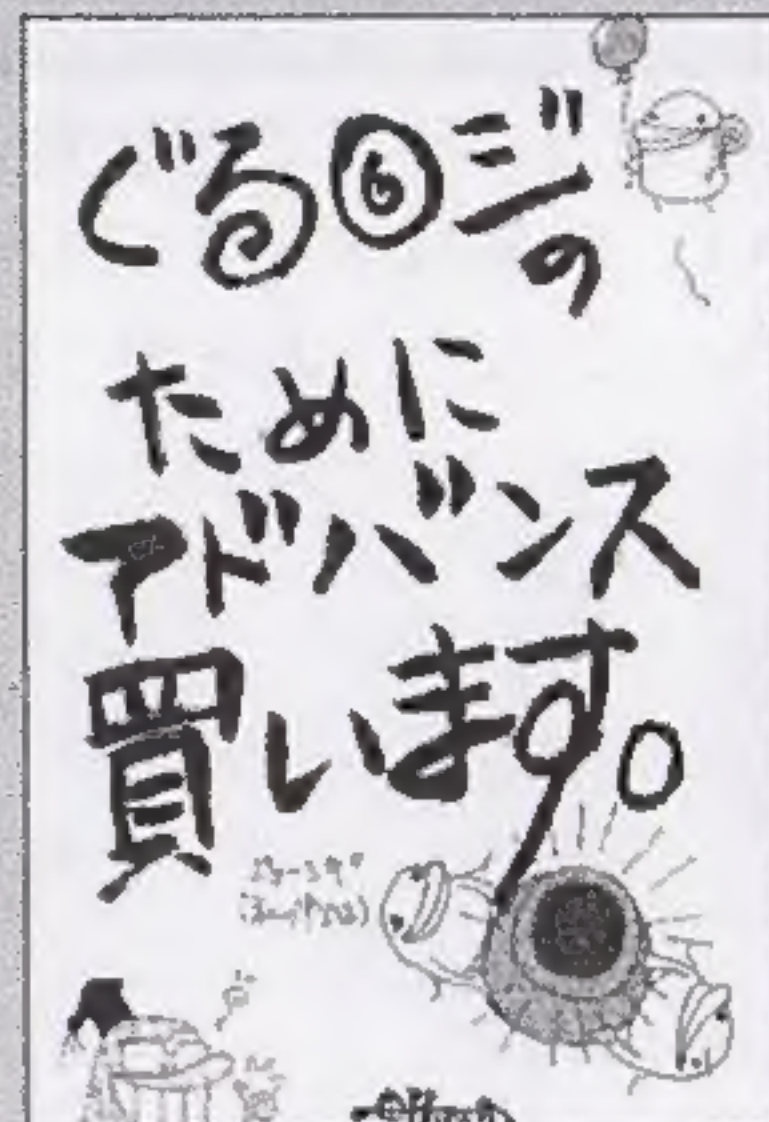 ぐる⑥ジの
ために
アドバンス
買います。